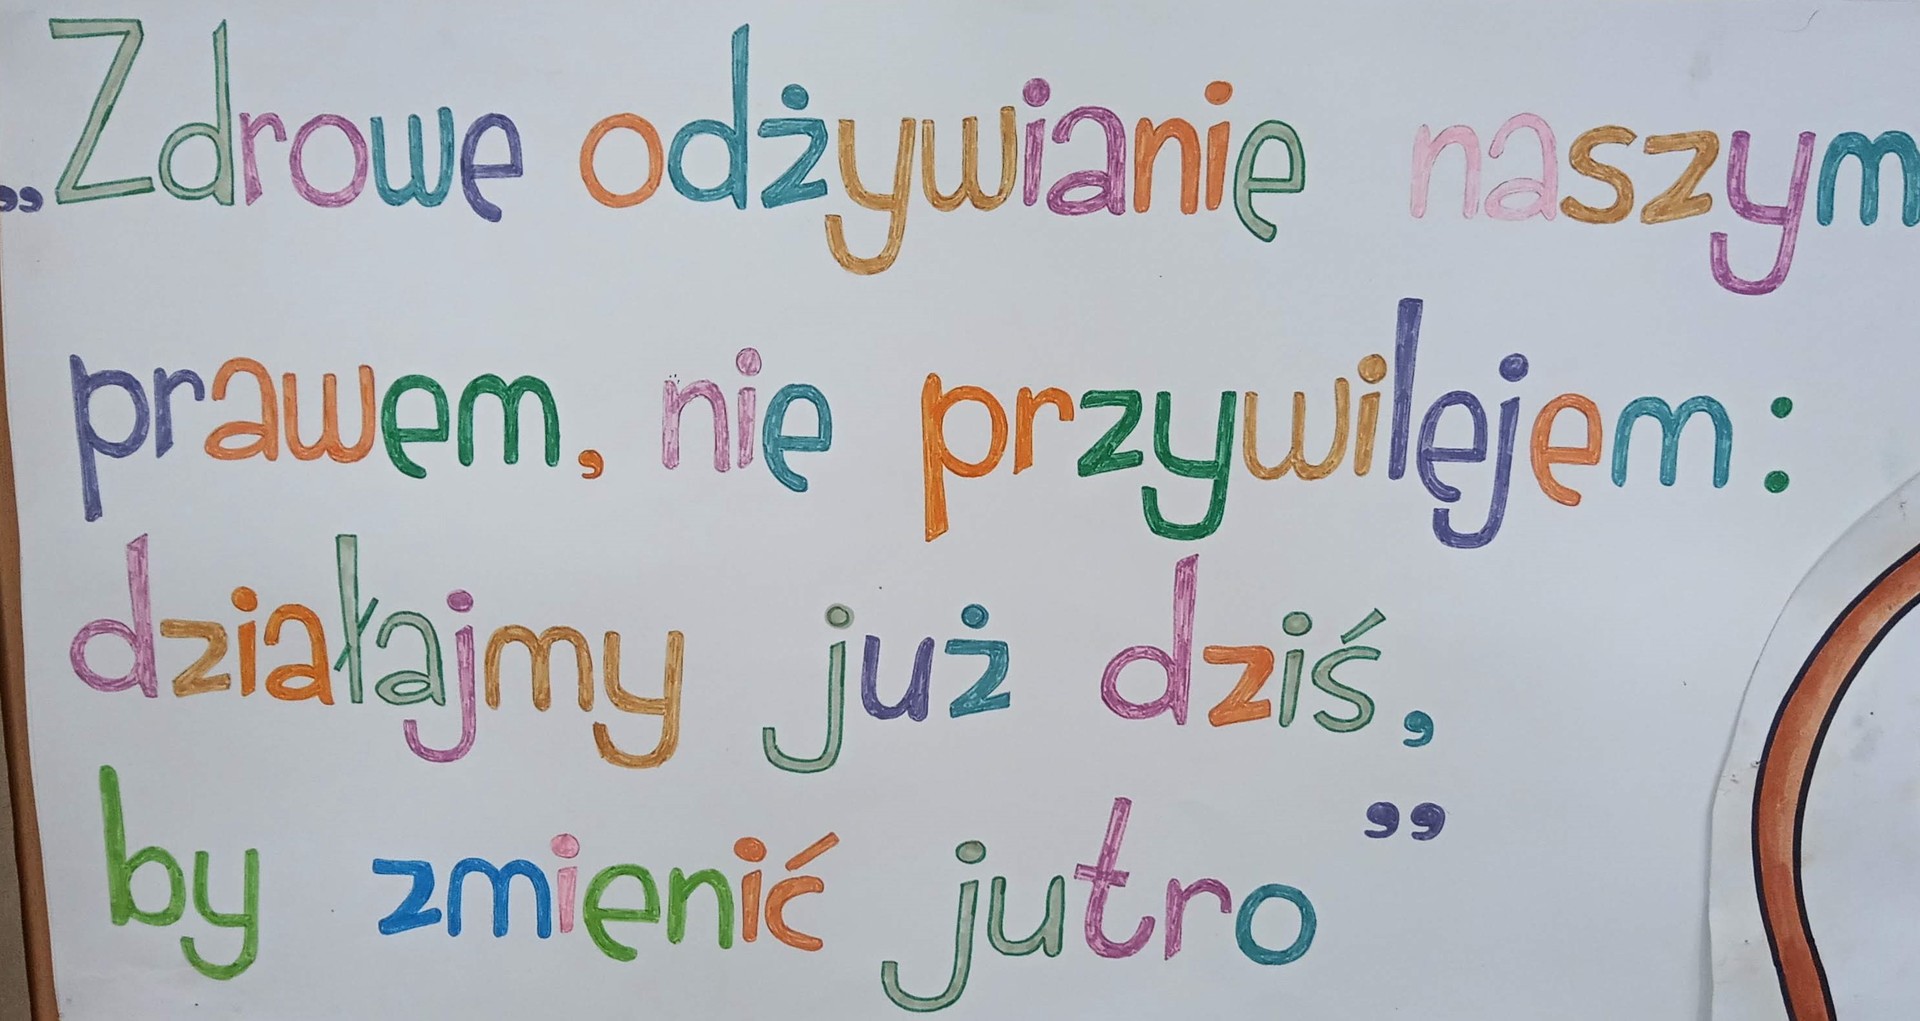 „Zdrowe odżywianie naszym
prawem, nie przywilejem:
działajmy już dziś,
by zmienić jutro”